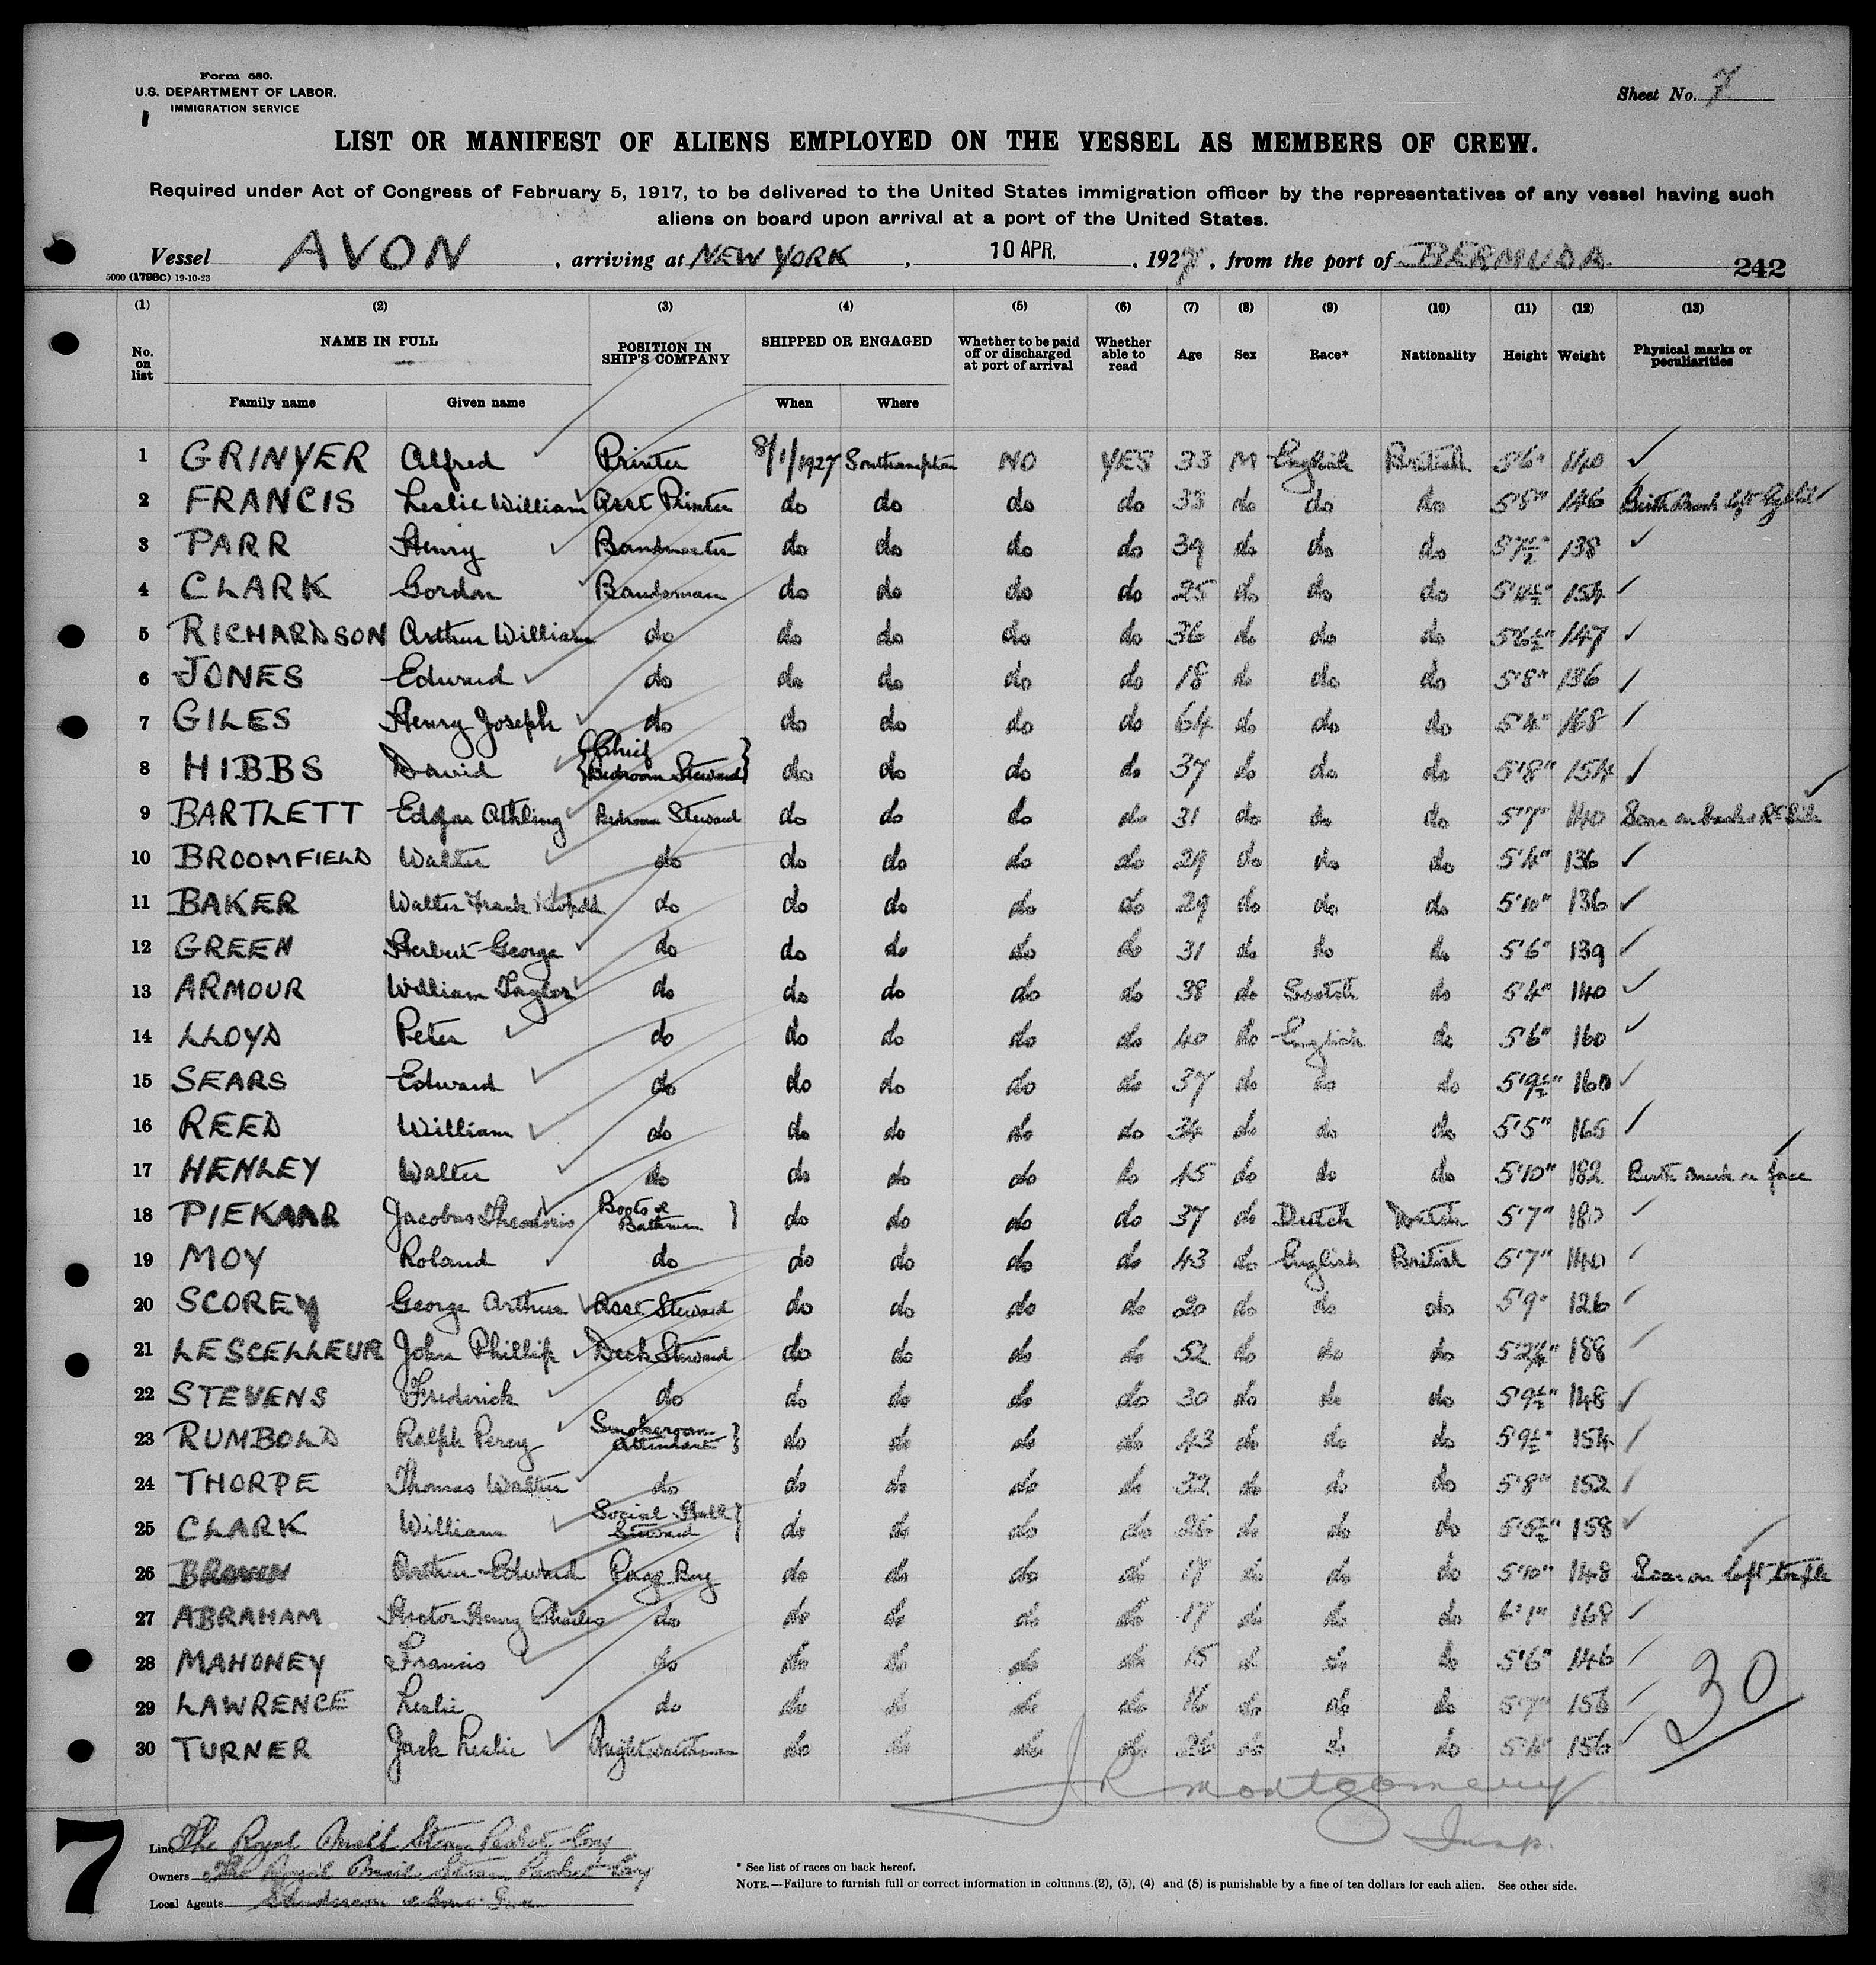 Form 680.
U.S. DEPARTMENT OF LABOR.
IMMIGRATION SERVICE
Sheet No. 7
LIST OR MANIFEST OF ALIENS EMPLOYED ON THE VESSEL AS MEMBERS OF CREW.
Required under Act of Congress of February 5, 1917, to be delivered to the United States immigration officer by the representatives of any vessel having such
aliens on board upon arrival at a port of the United States.
Vessel AVON, arriving at NEW YORK, 10 APR., 1927, from the port of BERMUDA
5000 (1798C) 19-10-23
242
(1) (2) (3) (4) (5) (6) (7) (8) (9) (10) (11) (12) (13)
No. on list NAME IN FULL POSITION IN SHIP'S COMPANY SHIPPED OR ENGAGED Whether to be paid off or discharged at port of arrival Whether able to read Age Sex Race* Nationality Height Weight Physical marks or peculiarities
Family name Given name When Where
1 GRINYER Alfred Printer 8/1/1927 Southampton NO YES 33 M English British 5'6" 140
2 FRANCIS Leslie William Asst Printer do do do do 38 do do do 5'8" 146 Birth Mark left
3 PARR Henry Bandmaster do do do do 39 do do do 5'7½" 138
4 CLARK Gordon Bandsman do do do do 25 do do do 154
5 RICHARDSON Arthur William do do do do do 36 do do do 5'6½" 147
6 JONES Edward do do do do do 18 do do do 5'8" 136
7 GILES Henry Joseph do do do do do 64 do do do 5'4" 168
8 HIBBS David {Chief Bedroom Steward} do do do do 37 do do do 5'8" 154
9 BARTLETT Edgar Athling Bedroom Steward do do do do 31 do do do 5'7" 140
10 BROOMFIELD Walter do do do do do 29 do do do 5'4" 136
11 BAKER Walter Frank Leopold do do do do do 29 do do do 5'10" 136
12 GREEN Herbert George do do do do do 31 do do do 5'6" 139
13 ARMOUR William Taylor do do do do do 38 do Scotch do 5'4" 140
14 LLOYD Peter do do do do do 40 do English do 5'6" 160
15 SEARS Edward do do do do do 37 do do do 5'9½" 160
16 REED William do do do do do 34 do do do 5'5" 165
17 HENLEY Walter do do do do do 45 do do do 5'10" 182 Birth mark on face
18 PIEKAAR Jacobus Theodoris Boots & Bathman } do do do do 37 do Dutch Dutch 5'7" 180
19 MOY Roland do do do do do 43 do English British 5'7" 140
20 SCOREY George Arthur Asst Steward do do do do 20 do do do 5'9" 126
21 LESCELLEUR John Phillip Deck Steward do do do do 52 do do do 188
22 STEVENS Frederick do do do do do 30 do do do 5'9½" 148
23 RUMBOLD Ralph Percy Smokeroom Attendant } do do do do 43 do do do 5'9½" 154
24 THORPE Thomas Walter do do do do do 32 do do do 5'8" 152
25 CLARK William Social Hall Steward } do do do do do do do 158
26 BROWN Arthur Edward Page Boy do do do do 17 do do do 5'10" 148 Scar on left temple
27 ABRAHAM Hector Henry Charles do do do do do 17 do do do 6'1" 168
28 MAHONEY Francis do do do do do 15 do do do 5'6" 146
29 LAWRENCE Leslie do do do do do 16 do do do 5'7" 156
30 TURNER Jack Leslie Nightwatchman do do do do 26 do do do 5'4" 156
30
J R Montgomery
Insp.
7
Line The Royal Mail Steam Packet Coy
Owners The Royal Mail Steam Packet Coy
Local Agents Sanderson & Sons Inc
* See list of races on back hereof.
NOTE.—Failure to furnish full or correct information in columns (2), (3), (4) and (5) is punishable by a fine of ten dollars for each alien. See other side.